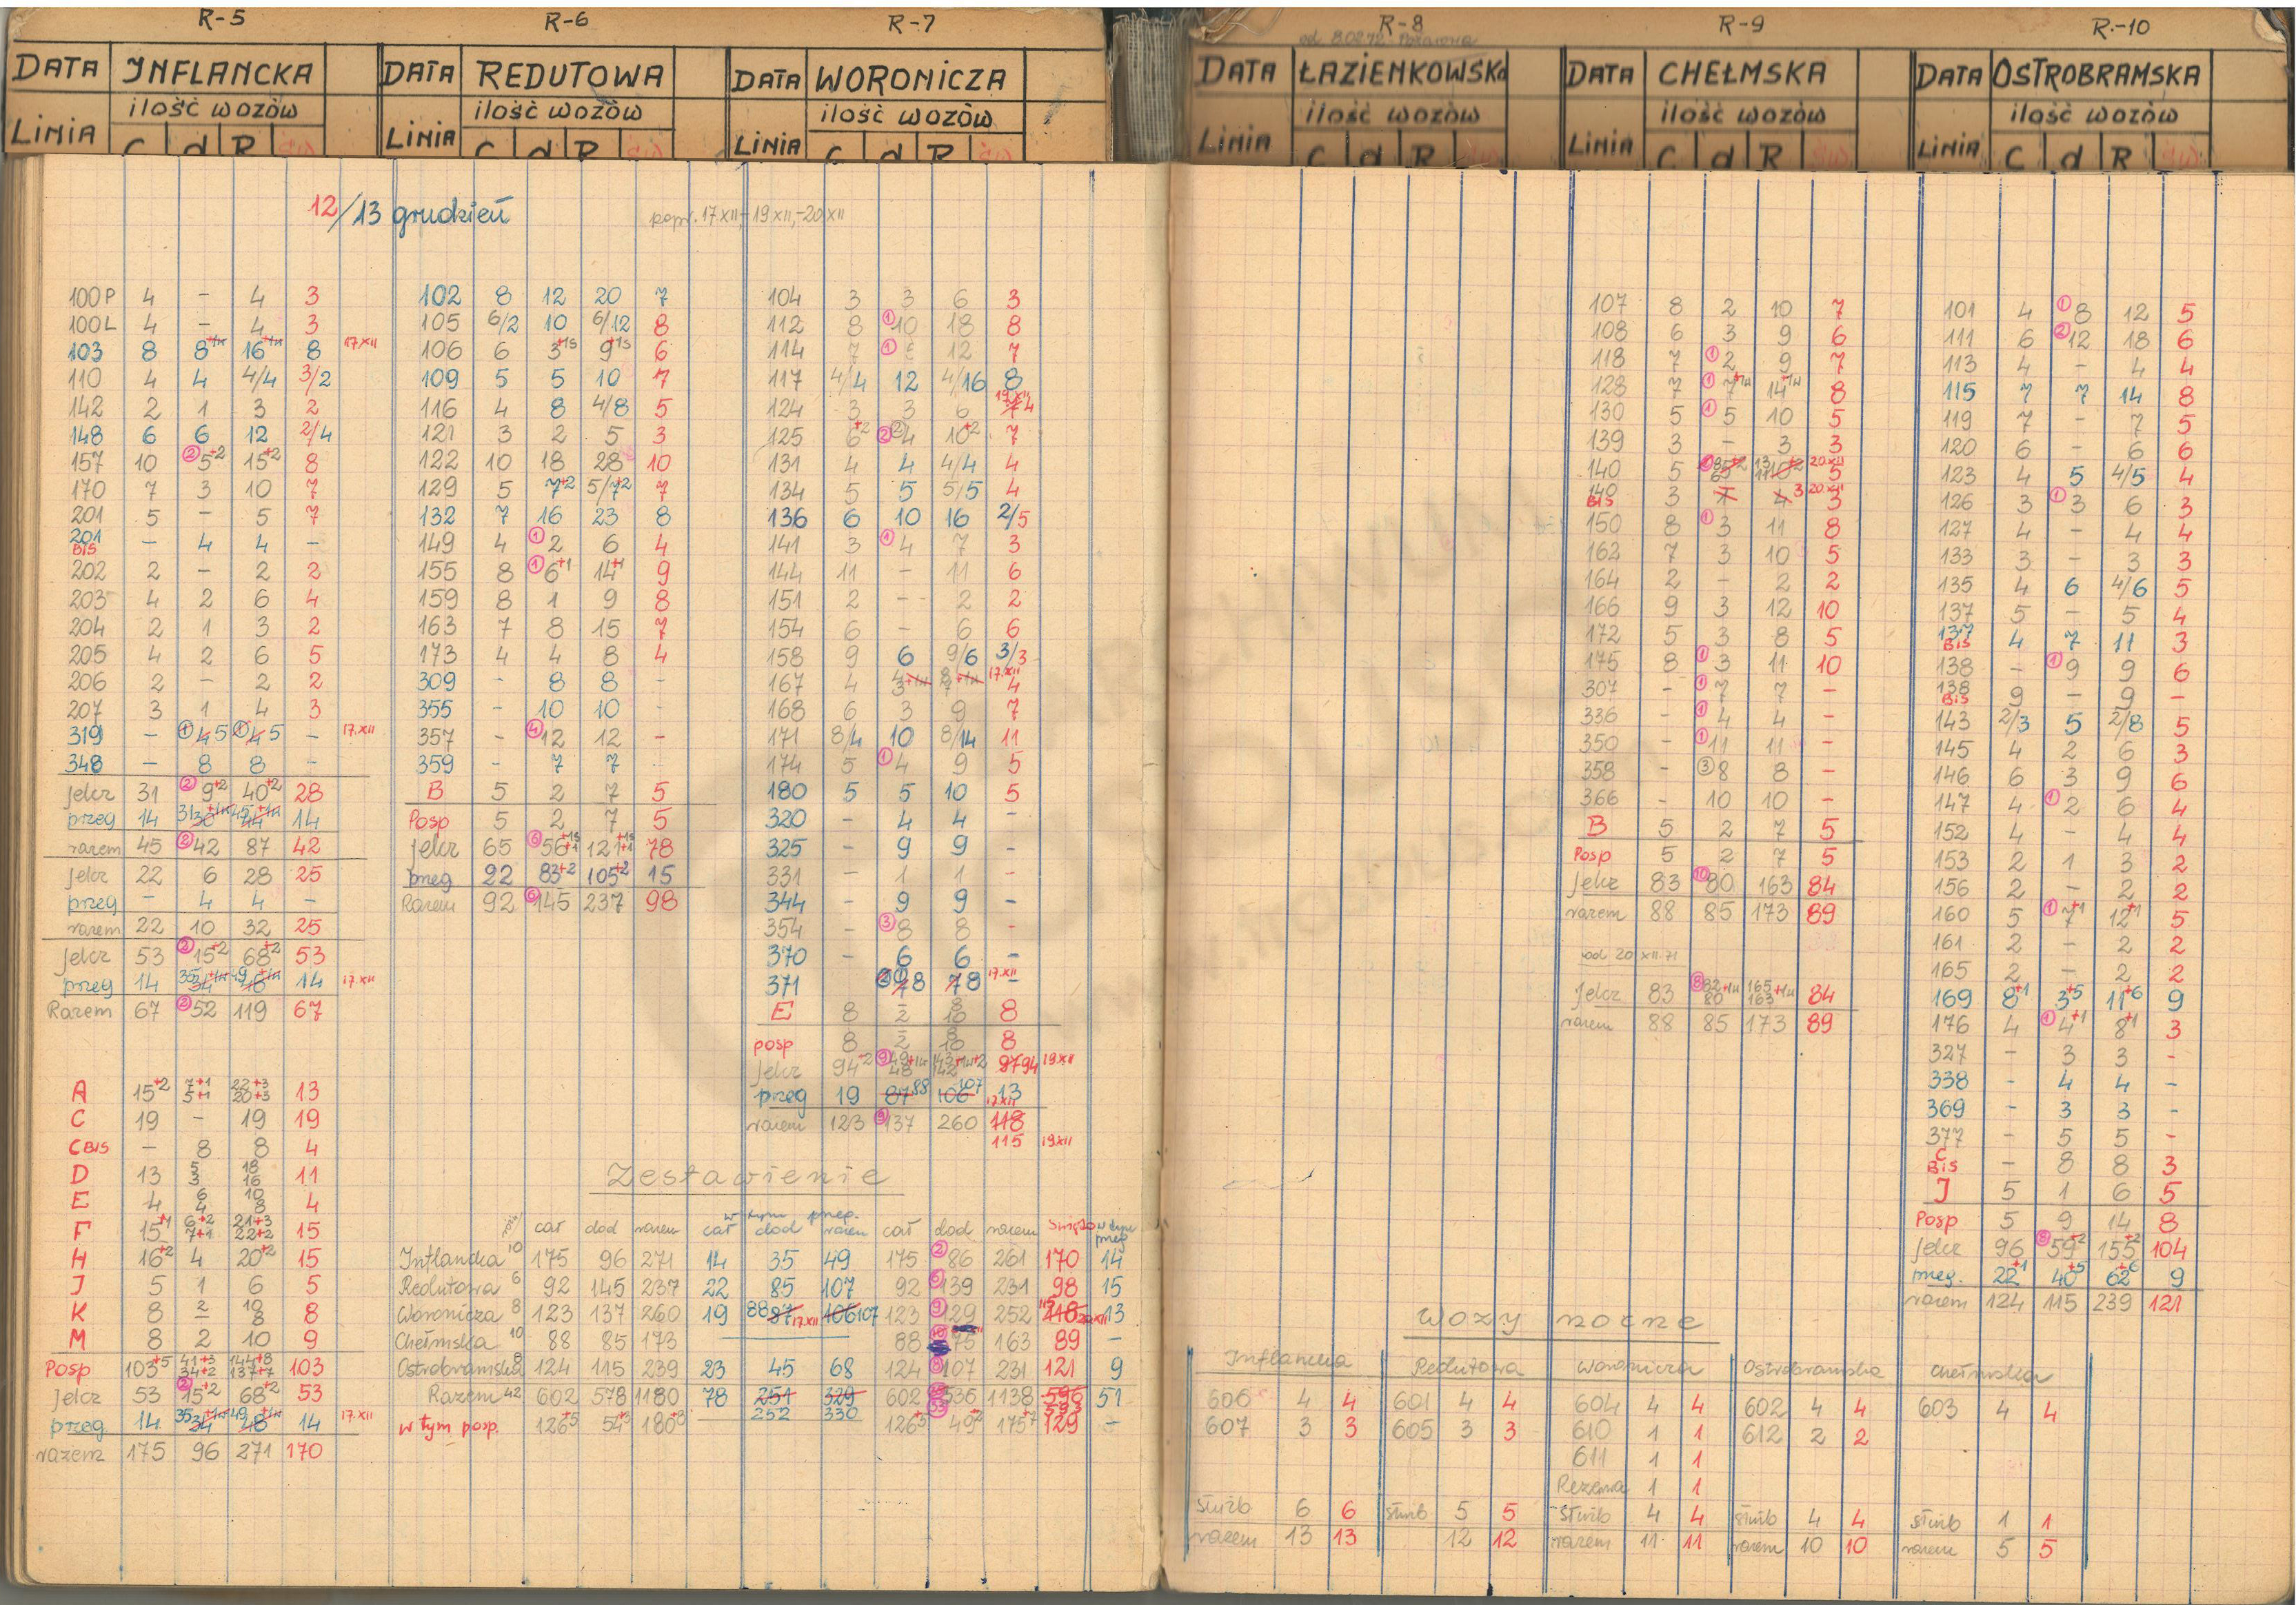 R-5 R-6 R-7 R-8 R-9 R.-10
od 8.02.72
DATA INFLANCKA DATA REDUTOWA DATA WORONICZA DATA ŁAZIENKOWSKA DATA CHEŁMSKA DATA OSTROBRAMSKA
LINIA ilość wozów LINIA ilość wozów LINIA ilość wozów LINIA ilość wozów LINIA ilość wozów LINIA ilość wozów
C d R św C d R św C d R św C d R św C d R św C d R św
12/13 grudzień popr. 17 XII - 19 XII, -20 XII
100P 4 - 4 3
100L 4 - 4 3
103 8 8+1n 16+1n 8 17.XII
110 4 4 4/4 3/2
142 2 1 3 2
148 6 6 12 2/4
157 10 ② 5+2 15+2 8
170 7 3 10 7
201 5 - 5 7
201 BIS - 4 4 -
202 2 - 2 2
203 4 2 6 4
204 2 1 3 2
205 4 2 6 5
206 2 - 2 2
207 3 1 4 3
319 - ① 4 5 ① 4 5 - 17.XII
348 - 8 8 -
Jelcz 31 ② 9+2 40+2 28
przeg 14 14
razem 45 ② 42 87 42
Jelcz 22 6 28 25
przeg - 4 4 -
razem 22 10 32 25
Jelcz 53 ② 15+2 68+2 53
przeg 14 35 34+1n 49 48+1n 14 17.XII
Razem 67 ② 52 119 67
A 15+2 7+1 5+1 22+3 20+3 13
C 19 - 19 19
C BIS - 8 8 4
D 13 5 3 18 16 11
E 4 6 4 10 8 4
F 15+1 6+2 7+1 21+3 22+2 15
H 16+2 4 20+2 15
J 5 1 6 5
K 8 2 - 10 8 8
M 8 2 10 9
Posp 103+5 41+3 34+2 144+8 137+7 103
Jelcz 53 ② 15+2 68+2 53
przeg 14 35 34+1n 49 48+1n 14 17.XII
razem 175 96 271 170
102 8 12 20 7
105 6/2 10 6/12 8
106 6 3+1s 9+1s 6
109 5 5 10 7
116 4 8 4/8 5
121 3 2 5 3
122 10 18 28 10
129 5 7+2 5/7+2 7
132 7 16 23 8
149 4 ① 2 6 4
155 8 ① 6+1 14+1 9
159 8 1 9 8
163 7 8 15 7
173 4 4 8 4
309 - 8 8 -
355 - 10 10 -
357 - ④ 12 12 -
359 - 7 7 -
B 5 2 7 5
Posp 5 2 7 5
Jelcz 65 ⑥ 56+1s+1 121+1s+1 78
przeg 22 83+2 105+2 15
Razem 92 ⑥ 145 237 98
104 3 3 6 3
112 8 ① 10 18 8
114 7 ① 12 7
117 4/4 12 4/16 8
124 3 3 6 7 4 19.XII
125 6+2 ② ② 4 10+2 7
131 4 4 4/4 4
134 5 5 5/5 4
136 6 10 16 2/5
141 3 ① 4 7 3
144 11 - 11 6
151 2 - 2 2
154 6 - 6 6
158 9 6 9/6 3/3
167 4 4 3+1n 8 7+1n 4 17.XII
168 6 3 9 7
171 8/4 10 8/14 11
174 5 ① 4 9 5
180 5 5 10 5
320 - 4 4 -
325 - 9 9 -
331 - 1 1 -
344 - 9 9 -
354 - ③ 8 8 -
370 - 6 6 -
371 7 8 7 8 - 17.XII
E 8 2 - 10 8 8
posp 8 2 - 10 8 8
Jelcz 94+2 ⑨ 49 48+1n 143 142+1n+2 97 94 19XII
przeg 19 87 88 106 107 13 17.XII
razem 123 ⑨ 137 260 118
115 19XII
Zestawienie
w tym przeg.
posp cał dod razem cał dod razem cał dod razem święto w tym przeg
Inflancka 10 175 96 271 14 35 49 175 ② 86 261 170 14
Redutowa 6 92 145 237 22 85 107 92 ⑥ 139 231 98 15
Woronicza 8 123 137 260 19 88 87 17.XII 106 107 123 ⑨ 129 252 115 118 20XII 13
Chełmska 10 88 85 173 88 75 163 89 -
Ostrobramska 8 124 115 239 23 45 68 124 ⑧ 107 231 121 9
Razem 42 602 578 1180 78 251 329 602 536 1138 596 593 51
252 330
w tym posp. 126+5 54+3 180+8 126+5 49+2 175+7 129 -
107 8 2 10 7
108 6 3 9 6
118 7 ① 2 9 7
128 7 ① 7+1n 14+1n 8
130 5 ① 5 10 5
139 3 - 3 3
140 5 5 20 XII
140 BIS 3 1 4 3 3 20 XII
150 8 ① 3 11 8
162 7 3 10 5
164 2 - 2 2
166 9 3 12 10
172 5 3 8 5
175 8 ① 3 11 10
307 - ① 7 7 -
336 - ① 4 4 -
350 - ① 11 11 -
358 - ③ 8 8 -
366 - 10 10 -
B 5 2 7 5
Posp 5 2 7 5
Jelcz 83 ⑩ 80 163 84
razem 88 85 173 89
od 20 XII.71
Jelcz 83 ⑧ 82+1n 80 165+1n 163 84
razem 88 85 173 89
101 4 ① 8 12 5
111 6 ② 12 18 6
113 4 - 4 4
115 7 7 14 8
119 7 - 7 5
120 6 - 6 6
123 4 5 4/5 4
126 3 ① 3 6 3
127 4 - 4 4
133 3 - 3 3
135 4 6 4/6 5
137 5 - 5 4
137 BIS 4 7 11 3
138 - ① 9 9 6
138 BIS 9 - 9 -
143 2/3 5 2/8 5
145 4 2 6 3
146 6 3 9 6
147 4 ① 2 6 4
152 4 - 4 4
153 2 1 3 2
156 2 - 2 2
160 5 ① 7+1 12+1 5
161 2 - 2 2
165 2 - 2 2
169 8+1 3+5 11+6 9
176 4 ① 4+1 8+1 3
327 - 3 3 -
338 - 4 4 -
369 - 3 3 -
377 - 5 5 -
C BIS - 8 8 3
J 5 1 6 5
Posp 5 9 14 8
Jelcz 96 ⑧ 59+2 155+2 104
przeg. 22+1 40+5 62+6 9
razem 124 115 239 121
Wozy nocne
Inflancka Redutowa Woronicza Ostrobramska Chełmska
606 4 4 601 4 4 604 4 4 602 4 4 603 4 4
607 3 3 605 3 3 610 1 1 612 2 2
611 1 1
Rezerwa 1 1
służb 6 6 służb 5 5 służb 4 4 służb 4 4 służb 1 1
razem 13 13 12 12 razem 11 11 razem 10 10 razem 5 5